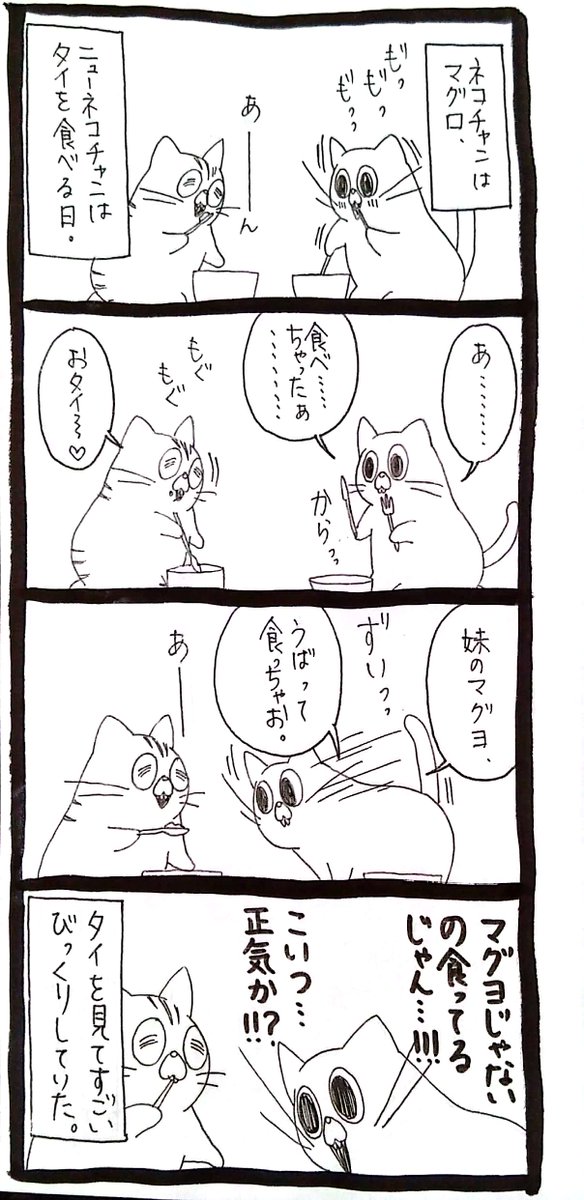 ネコチャンは
マグロ、
もっ
もっ
もっっ
あーーん
ニューネコチャンは
タイを食べる日。
あ………
食べ……
ちゃったぁ
………
からっっ
もぐ
もぐ
おタイ〜♡
妹のマグヨ、
ずいっっ
うばって
食っちゃお。
あー
マグヨじゃない
の食ってる
じゃん…!!!
こいつ…
正気か!!?
タイを見てすごい
びっくりしていた。